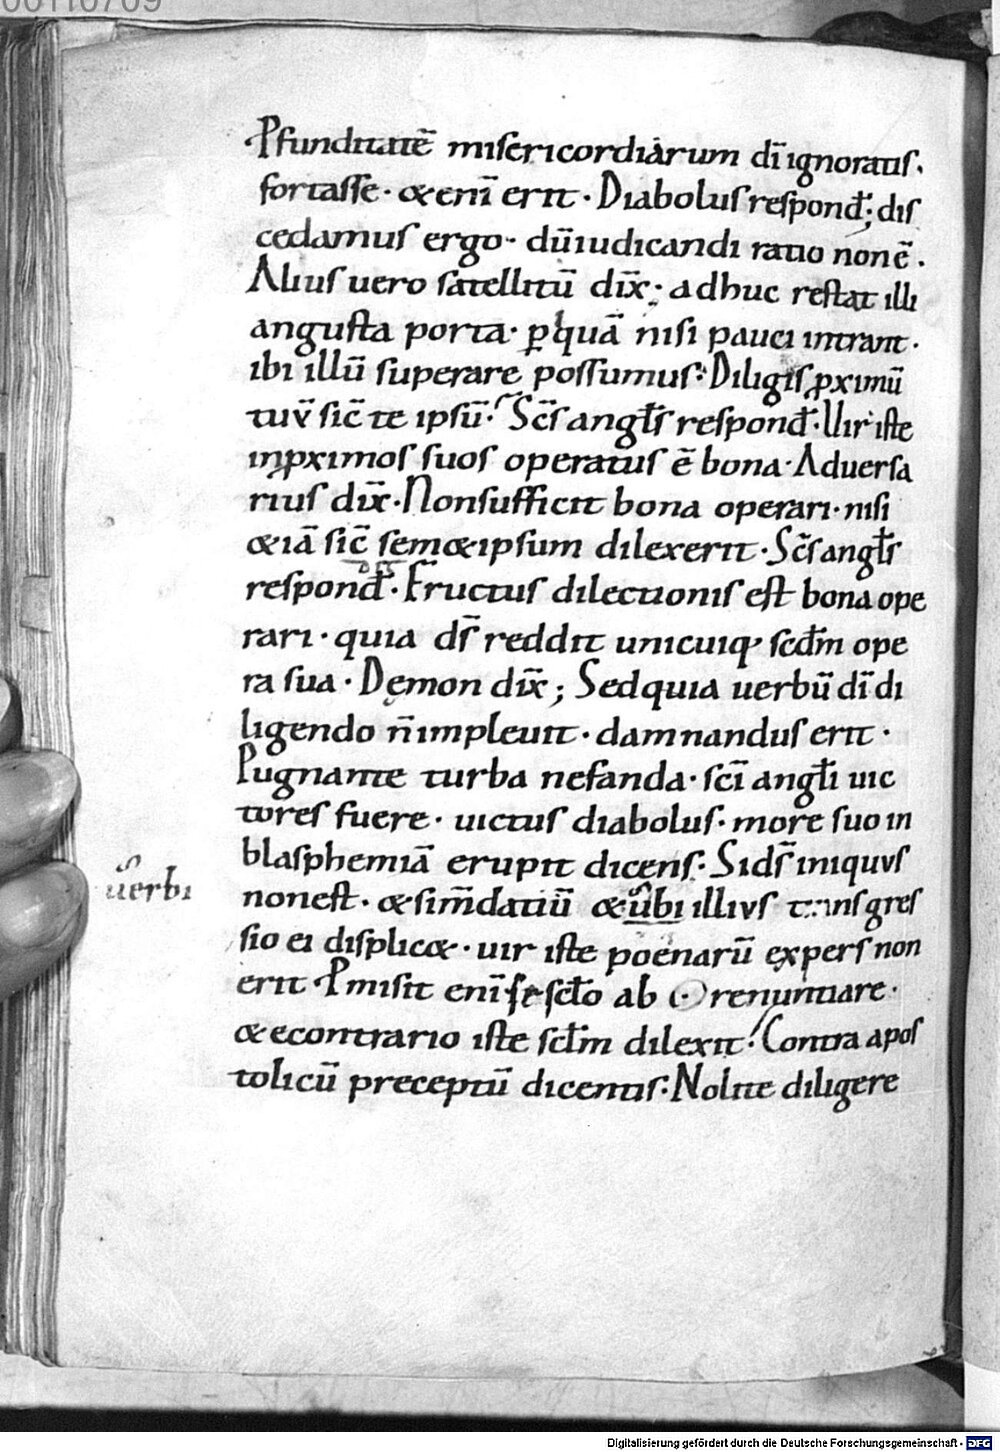 00110709
Pfunditatē misericordiarum dī ignoratis.
fortasse · & enī erit · Diabolus respond̄; dis
cedamus ergo · dūiudicandi ratio non ē .
Alius uero satellitū dix̄; adhuc restat illi
angusta porta · p̱quā nisi pauci intrant ·
ibi illū superare possumus: Diligis ꝓximū
tuv̄ sic̄ te ipsū. Sc̄s angl̄s respond̄ · Uir iste
inꝓximos suos operatus ē bona · Aduersa
rius dix̄ · Non sufficit bona operari · nisi
&iā sic̄ sem&ipsum dilexerit · Sc̄s angl̄s
respond̄ · Fructus dilectionis est bona ope
rari · quia ds̄ reddit unicuiq; scd̄m ope
ra sua · Dęmon dix̄; Sed quia uerbū dī di
ligendo n̄ impleuit · damnandus erit ·
Pugnante turba nefanda · scī angl̄i uic
tores fuere · uictus diabolus · more suo in
blasphemiā erupit dicens: Si ds̄ iniquvs
non est · & sim̄datiū & ūbi illivs transgres
uerbi
sio ei displic& · uir iste poenarū expers non
erit · Pmisit enī se scl̄o ab renuntiare ·
& econtrario iste scl̄m dilexit! Contra apos
tolicū preceptū dicentis: Nolite diligere
Digitalisierung gefördert durch die Deutsche Forschungsgemeinschaft - DFG